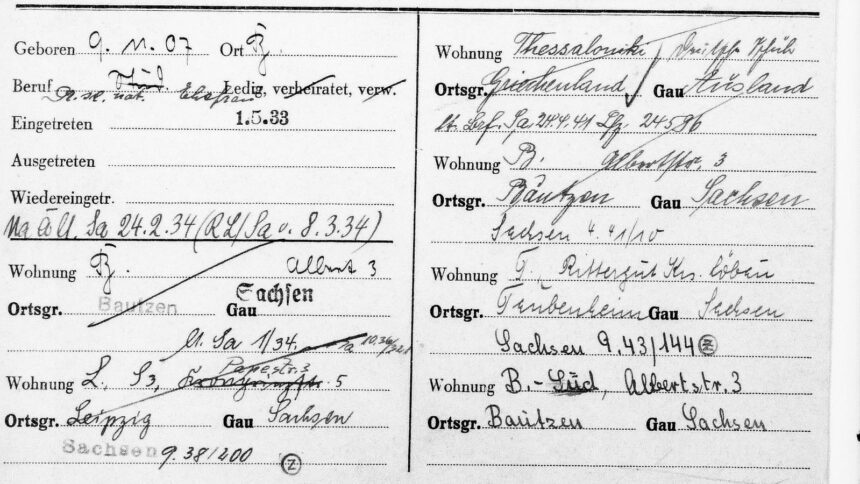 Geboren 9. 11. 07 Ort B.
Beruf Stud Ledig, verheiratet, verw.
R. sc. nat. Ehefrau
Eingetreten 1.5.33
Ausgetreten
Wiedereingetr.
Sa 24.2.34 (RL/Sa v. 8.3.34)
Wohnung B. Albert 3
Ortsgr. Bautzen Gau Sachsen
Sa 1/34.
Wohnung L. S3, Papestr. 3 5
Ortsgr. Leipzig Gau Sachsen
Sachsen 9.38/200 Z
Wohnung Thessaloniki, Deutsche Schule
Ortsgr. Griechenland Gau Ausland
lt. Sa 24.4.41 Lfz. 24586
Wohnung B. Albertstr. 3
Ortsgr. Bautzen Gau Sachsen
Sachsen 4.41/10
Wohnung T, Rittergut Krs. Löbau
Ortsgr. Taubenheim Gau Sachsen
Sachsen 9.43/144 Z
Wohnung B.-Süd, Albertstr. 3
Ortsgr. Bautzen Gau Sachsen